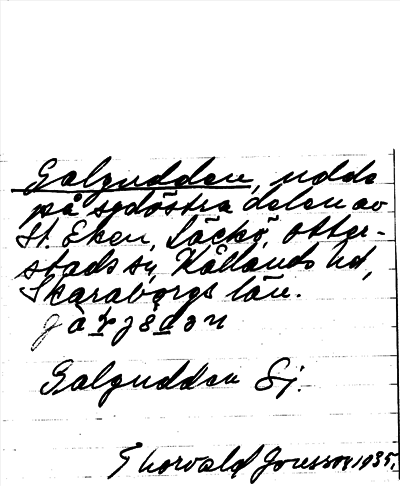 Galgudden, udde
på sydöstra delen av
St. Eken, Läckö, Otter-
stads sn, Kållands hd,
Skaraborgs län.
Galgudden Ej.
Thorvald Jonsson 1935.